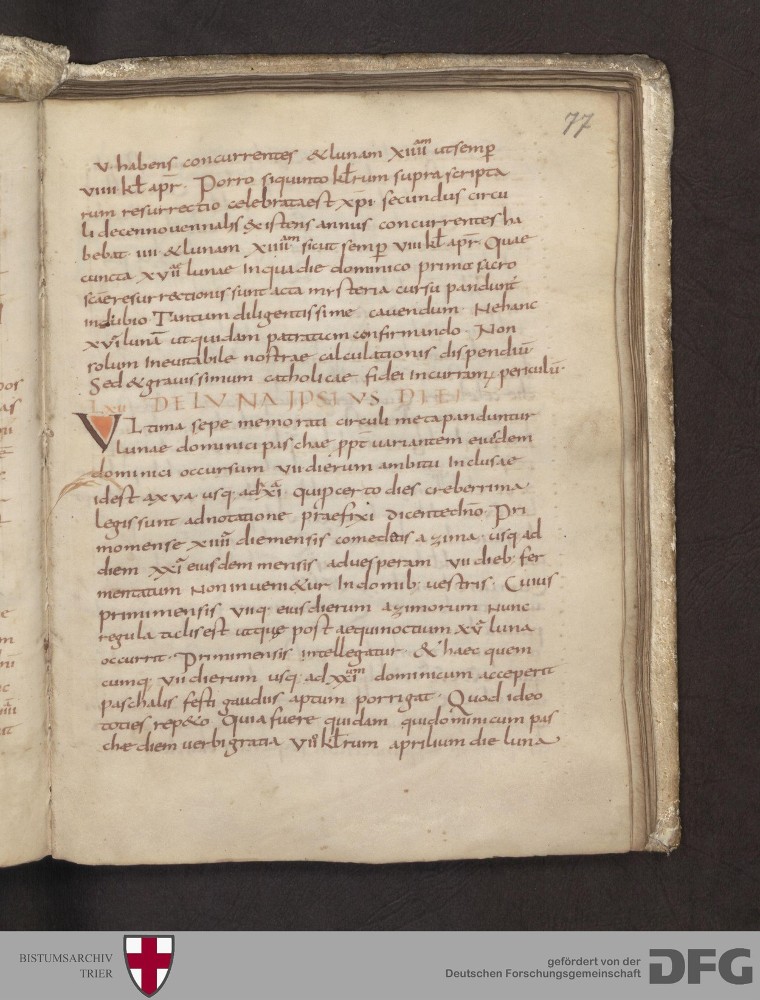 77
v· habens concurrentes &lunam xiiii utsemp
viiii kl apr· Porro siquinto klrum supra scripta
rum resurrectio celebrataest xpi secundus circu
li decennouennalis existens annus concurrentes ha
bebat iiii &lunam xiiii sicut semp viii kl apr Quae
cuncta xvii lunae Inquadie dominico primasacro
scae resurrectionis sunt acta mysteria cursu pandunt
indubio· Tantum diligentissime cauendum· Nehanc
xvi luna ut quidam patratam confirmando· Non
solum Ineuitabile nostrae calculationis dispendiū
Sed &grauissimum catholicae fidei incurram; periculū·
Lxii DELUNA IPSIUS DIEI
VLtima sepe memorati circuli meta panduntur
lunae dominici paschae ppt uariantem eiusdem
dominici occursum vii dierum ambitu Inclusae
idest a xv a usq· ad xxi quip certo dies creberrima·
legis sunt adnotatione praefixi dicente dno· Pri
momense xiiii diemensis comeditis azima· usq· ad
diem xxi eiusdem mensis aduesperam vii dieb· fer
mentatum Non inueni&ur In domib· uestris· Cuius
primimensis viiq· eius dierum azimorum Nunc
regula talis est utque post aequinoctium xv luna
occurrit· Primimensis intellegatur· & haec quem
cumq· vii dierum usq· ad xxi dominicum acceperit
paschalis festi gaudiis aptum porrigat· Quod ideo
toties rep&o Quia fuere quidam quidominicum pas
che diem uerbi gratia vii klrum aprilium die luna
BISTUMSARCHIV
TRIER
gefördert von der
Deutschen Forschungsgemeinschaft
DFG